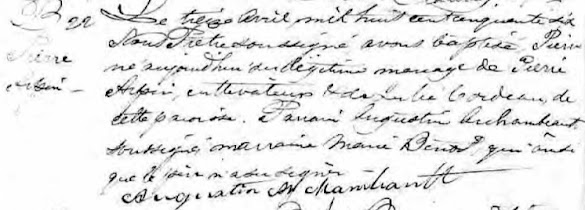 B 22 Le treize Avril mil huit cent cinquante six
Pierre Nous Prêtre soussigné avons baptisé, Pierre
Arpin né aujourd'hui du légitime mariage de Pierre
Arpin, cultivateur & de Julie Cordeau, de
cette paroisse. Parrain Augustin Archambault
soussigné marraine Marie Benoit, qui ainsi
que le père n'a su signer.
Augustin Archambault